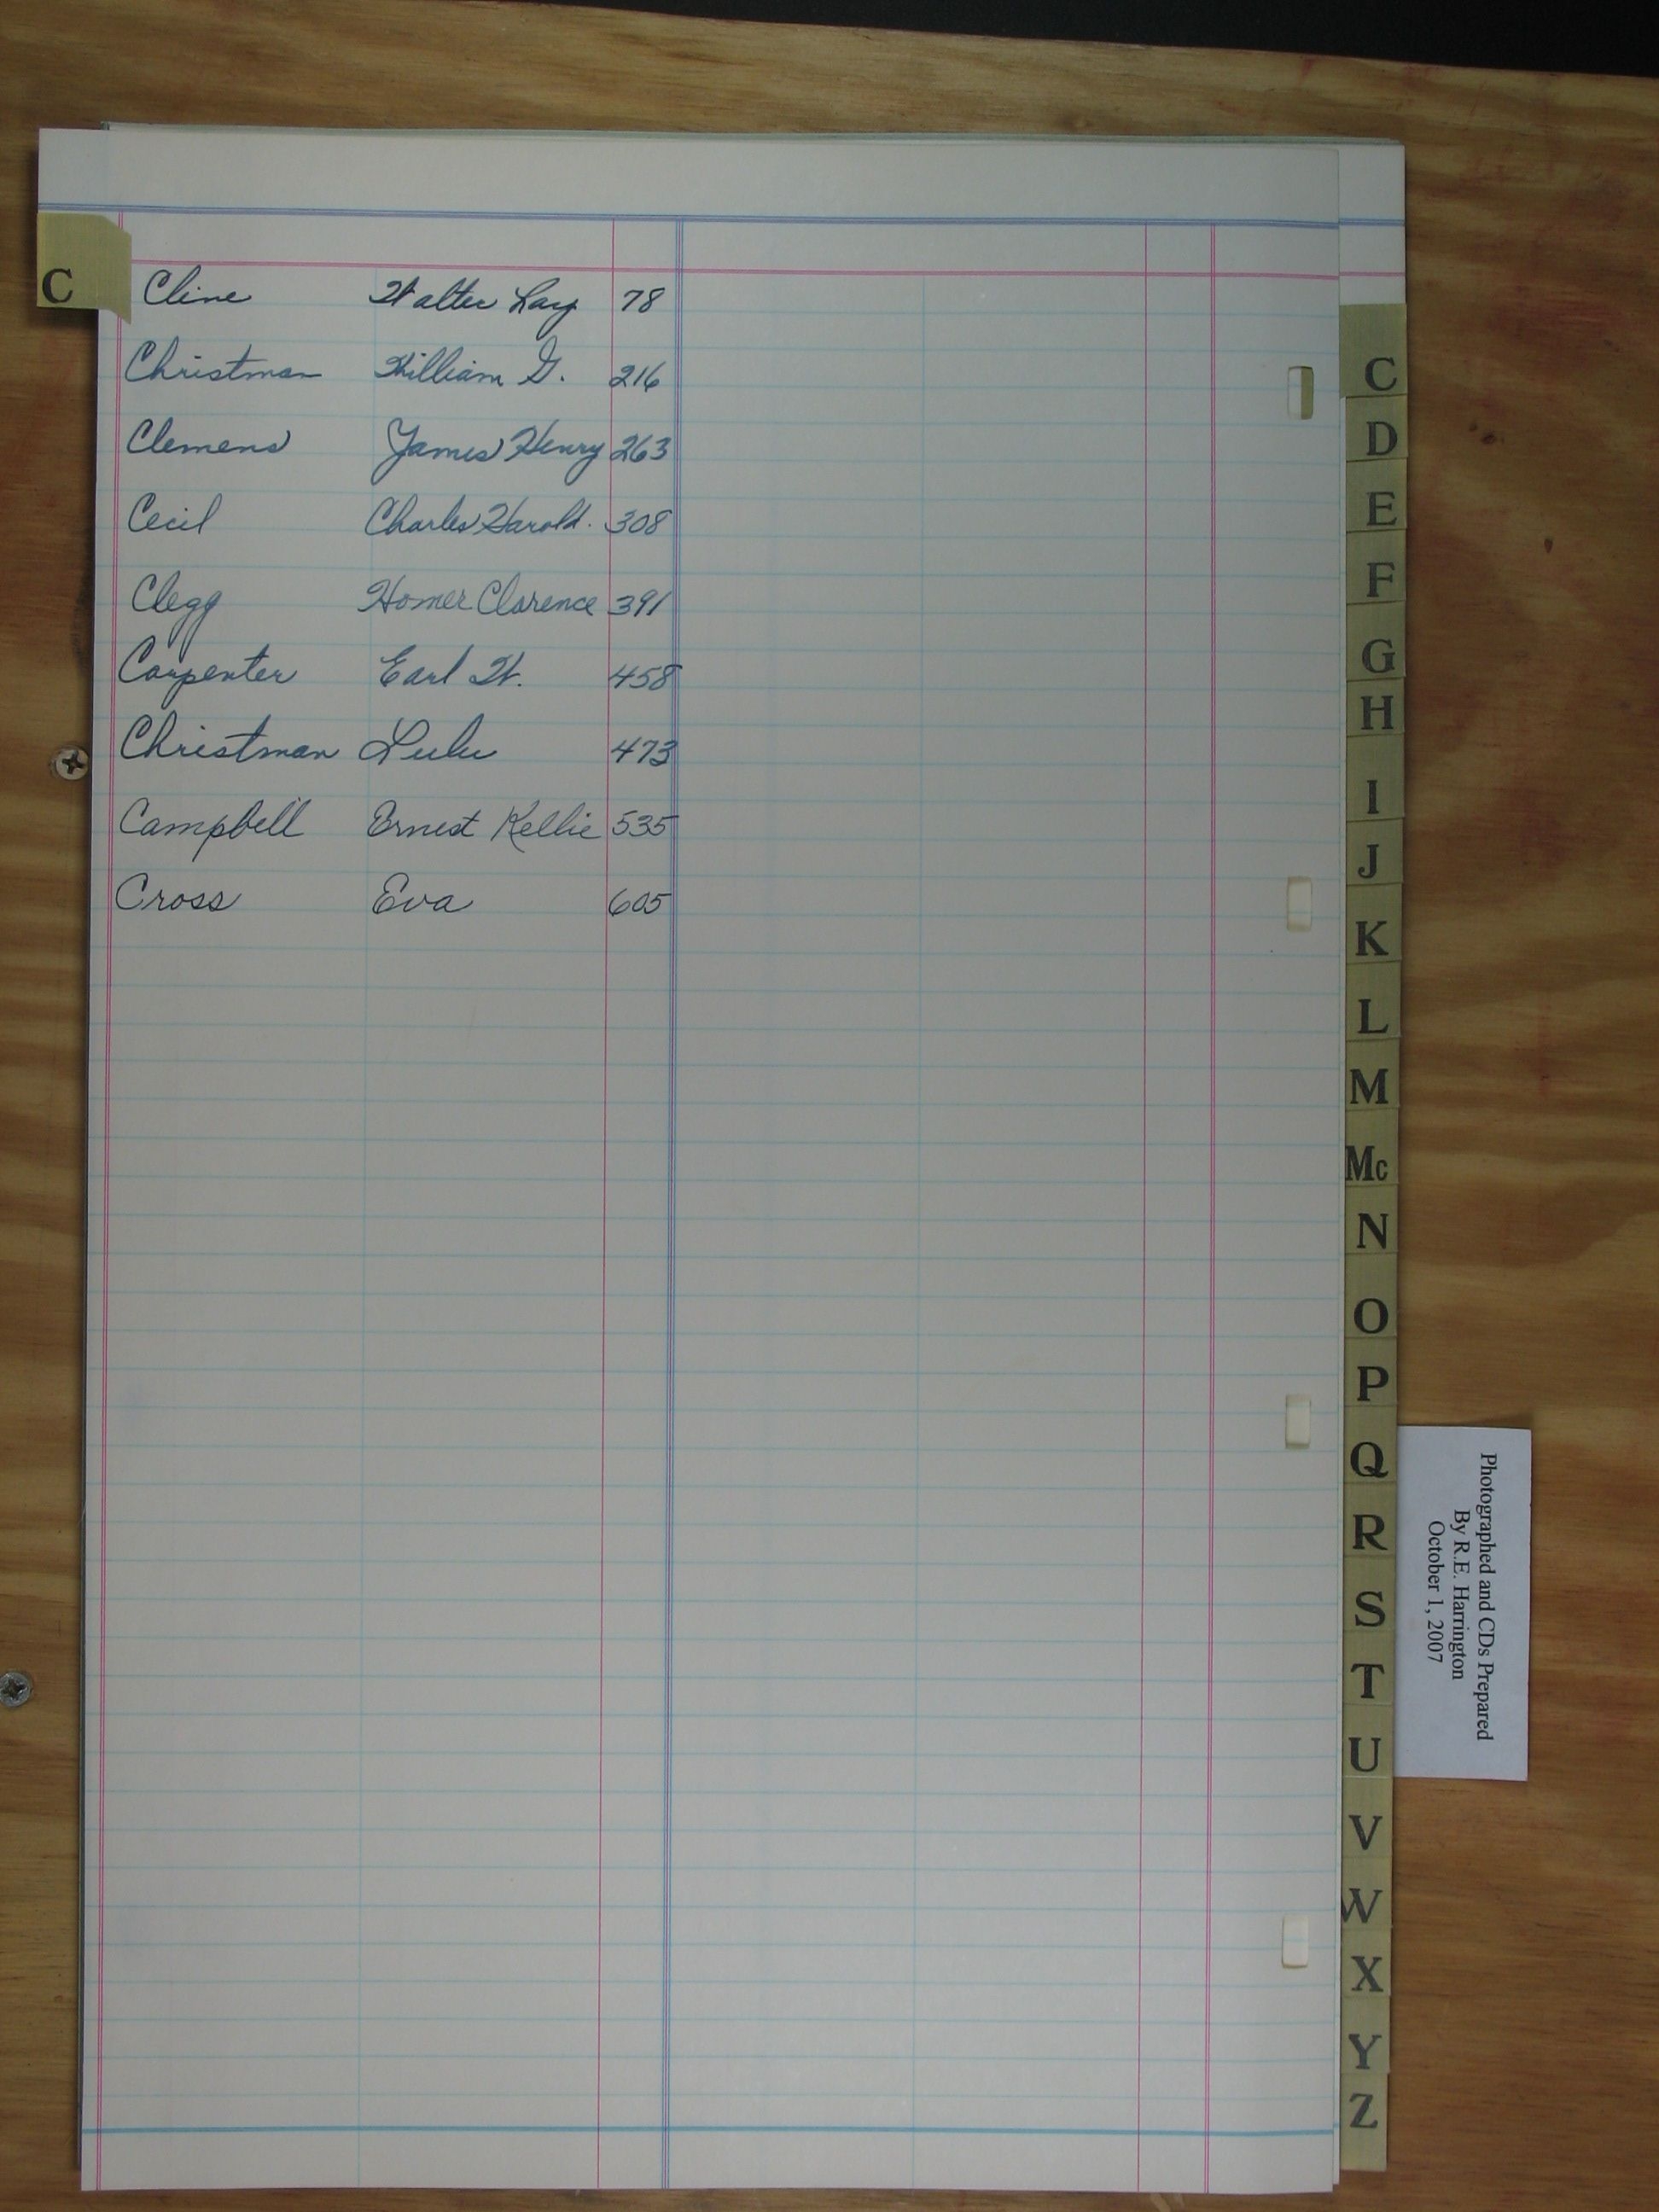 C
Cline Walter Lay 78
Christman William G. 216
Clemens James Henry 263
Cecil Charles Harold. 308
Clegg Homer Clarence 391
Carpenter Earl W. 458
Christman Lulu 473
Campbell Ernest Kellie 535
Cross Eva 605
C
D
E
F
G
H
I
J
K
L
M
Mc
N
O
P
Q
R
S
T
U
V
W
X
Y
Z
Photographed and CDs Prepared
By R.E. Harrington
October 1, 2007